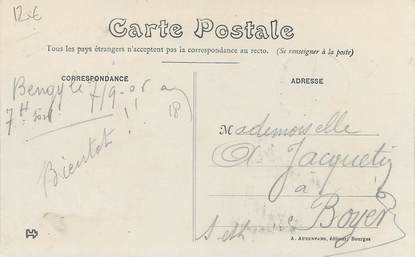 12€
Carte Postale
Tous les pays étrangers n'acceptent pas la correspondance au recto. (Se renseigner à la poste)
CORRESPONDANCE
ADRESSE
Bengy le 7/9-06
7H soir
18
Bientot !!
Mademoiselle
A Jacquet
à
Boyer
A. AUXENFANS, éditeur, Bourges